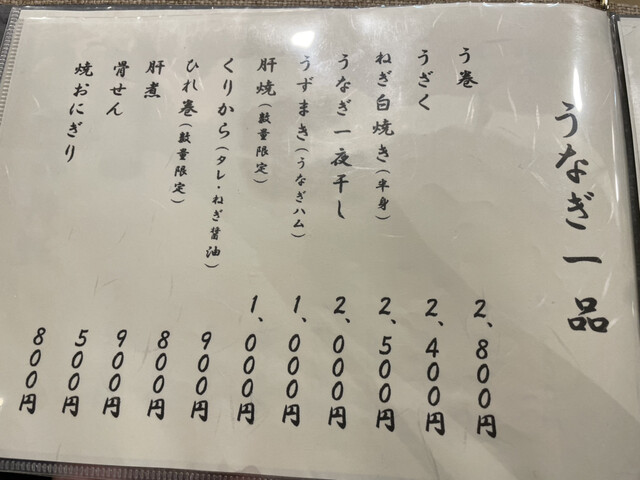 うなぎ一品
う巻 2、800円
うざく 2、400円
ねぎ白焼き(半身) 2、500円
うなぎ一夜干し 2、000円
うずまき(うなぎハム) 1、000円
肝焼(数量限定) 1、000円
くりから(タレ・ねぎ醤油) 900円
ひれ巻(数量限定) 800円
肝煮 900円
骨せん 500円
焼おにぎり 800円